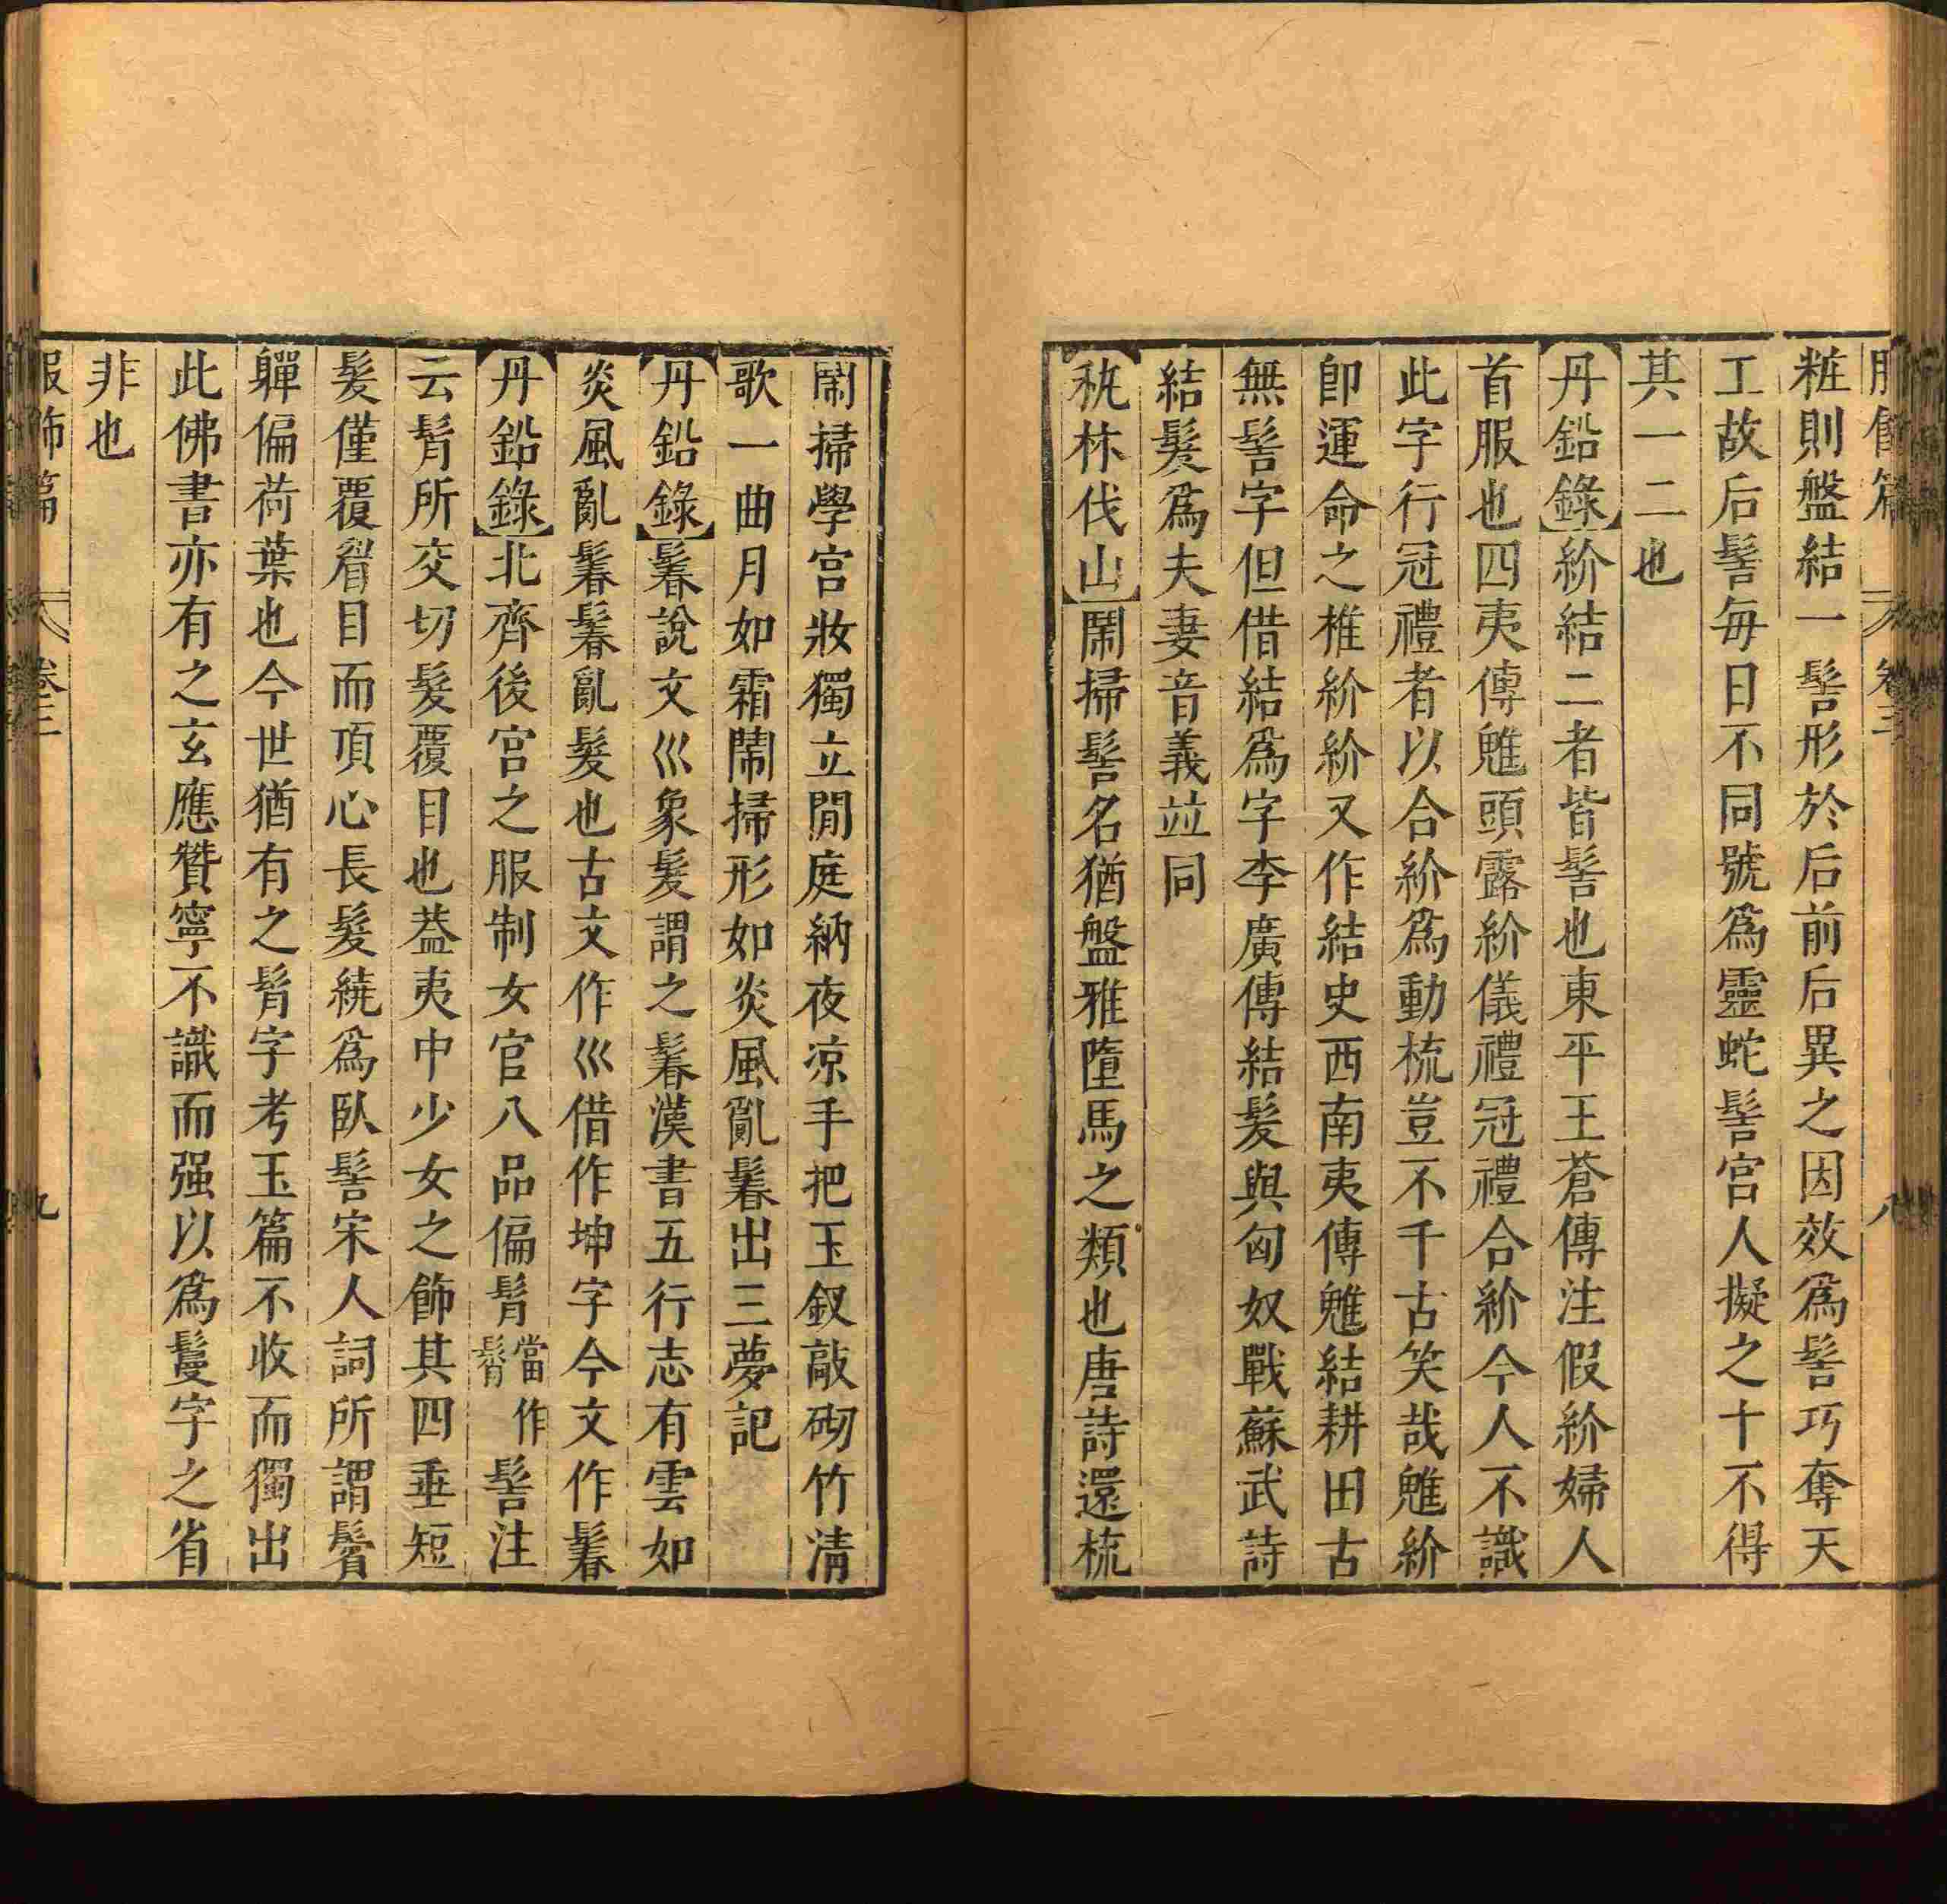 服飾篇 卷三 八
粧則盤結一髻形於后前后異之因效爲髻巧奪天
工故后髻每日不同號爲靈蛇髻宫人擬之十不得
其一二也
丹鉛錄紒結二者皆髻也東平王蒼傳注假紒婦人
首服也四夷傳魋頭露紒儀禮冠禮合紒今人不識
此字行冠禮者以合紒爲動梳豈不千古笑哉魋紒
卽運命之椎紒紒又作結史西南夷傳魋結耕田古
無髻字但借結爲字李廣傳結髮與匈奴戰蘇武詩
結髮爲夫妻音義竝同
秇林伐山鬧掃髻名猶盤雅墮馬之類也唐詩還梳
鬧掃學宫妝獨立閒庭納夜凉手把玉釵敲砌竹清
歌一曲月如霜鬧掃形如炎風亂鬊出三夢記
丹鉛錄鬊說文巛象髮謂之鬊漢書五行志有雲如
炎風亂鬊鬊亂髮也古文作巛借作坤字今文作鬊
丹鉛錄北齊後宫之服制女官八品偏髾當作髻注
云髾所交切髮覆目也葢夷中少女之飾其四垂短
髮僅覆眉目而頂心長髮繞爲臥髻宋人詞所謂鬌
軃偏荷葉也今世猶有之髾字考玉篇不收而獨出
此佛書亦有之玄應贊寧不識而强以爲鬘字之省
非也
服飾篇 卷三 九